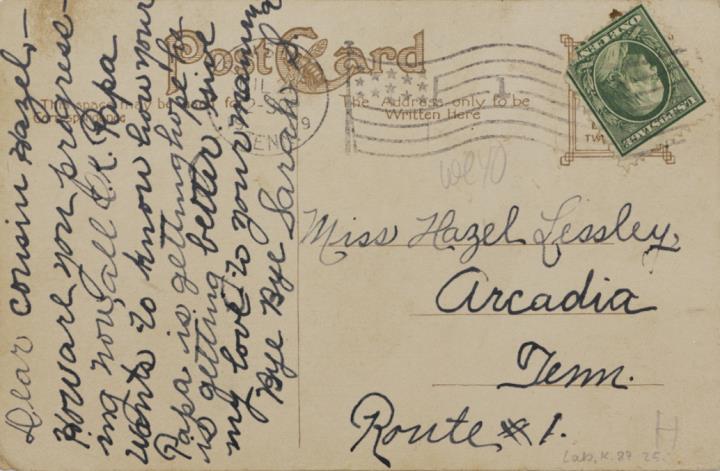 Post Card
This space may be used for
Correspondence
The Address only to be
Written Here
ONE CENT
U.S. POSTAGE
1
Dear cousin Hazel,—
How are you progress-
ing now, all O.K. Papa
wants to know how your
Papa is getting hope he
is getting better side
my love to your mamma
Bye Bye Sarah S.
Miss Hazel Lessley
Arcadia
Tenn.
Route #1.
H